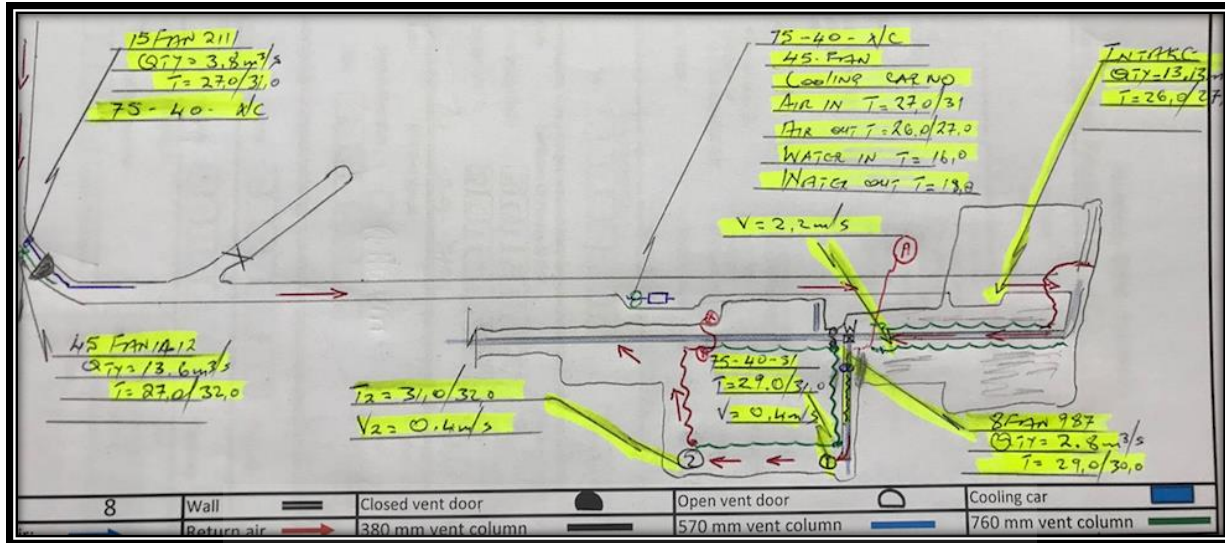 15 FAN 2111
QTY= 3.8 m³/s
T= 27.0/31.0
75-40- X/C
75-40- X/C
45-FAN
COOLING CAR NO
AIR IN T= 27.0/31
AIR OUT T= 26.0/27.0
WATER IN T= 16,0
WATER OUT T= 18,0
INTAKE
QTY=13,13m
T= 26,0/27
V= 2,2m/s
A
45 FAN 1A12
QTY= 13.6m³/s
T= 27.0/32,0
T2 = 31,0/32.0
V2 = 0.4m/s
75-40-31
T= 29.0/31,0
V= 0.4m/s
W
8 FAN 987
QTY= 2.8m³/s
T= 29,0/30,0
2
1
8
Wall
Closed vent door
Open vent door
Cooling car
Return air
380 mm vent column
570 mm vent column
760 mm vent column